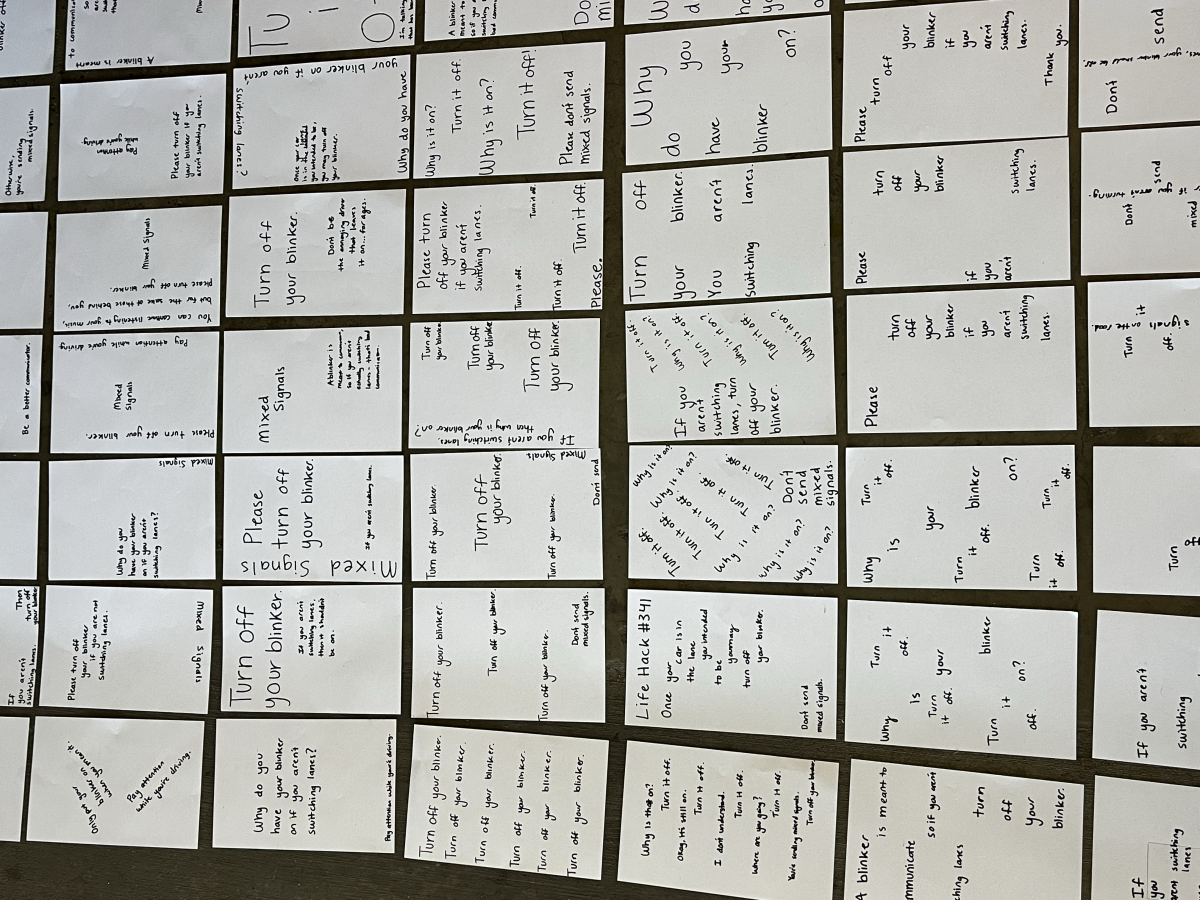 to communicate
A blinker is meant
Tu
i
O
A blinker
meant to
so if you a
switching
bad commu
Don
mi
Otherwise,
you're sending
mixed signals.
Pay attention
while you're driving.
Please turn off
your blinker if you
aren't switching lanes.
Why do you have
your blinker on if you aren't
switching lanes?
Once your car
is in the
you intended to be,
you may turn off
your blinker.
Why is it on?
Turn it off.
Why is it on?
Turn it off!
Please don't send
mixed signals.
Why
do you
have your
blinker on?
Please
turn off
your
blinker
if
you
aren't
switching
lanes.
Thank you.
Don't
send
Mixed Signals
You can continue listening to your music,
but for the sake of those behind you,
please turn off your blinker.
Turn off
your blinker.
Don't be
the annoying driver
that leaves
it on...for ages.
Please turn
off your blinker
if you aren't
switching lanes.
Turn it off.
Turn it off.
Turn it off.
Turn it off.
Please.
Turn off
your blinker.
You aren't
switching lanes.
Please
turn
off
your
blinker
if
you
aren't
switching
lanes.
Don't send
mixed
if you aren't turning.
Be a better communicator.
Pay attention while you're driving
Mixed
Signals
Please turn off your blinker.
Mixed
Signals
A blinker is
meant to communi
so if you aren't
actually switching
lanes - that's bad
communication.
Turn off
your blinker
Turn off
your blinker
Turn off
your blinker.
If you aren't switching lanes,
then why is your blinker on?
Turn it off.
Why is it on?
Turn it off.
Why is it on?
Turn it off.
Why is it on?
If you
aren't
switching
lanes, turn
off your
blinker.
Please
turn
off
your
blinker
if
you
aren't
switching
lanes.
signals on the road.
Turn it
off.
Mixed Signals
Why do you
have your blinker
on if you aren't
switching lanes?
Please
turn off
your blinker.
If you aren't switching lanes.
Mixed Signals
Turn off your blinker.
Turn off
your blinker.
Turn off your blinker.
Mixed Signals
Don't send
Why is it on?
Why is it on?
Turn it off.
Turn it off.
Turn it off.
Turn it off.
Turn it off.
Turn it off.
Turn it off.
Turn it off.
Why is it on?
Why is it on?
Why is it on?
Don't
send
mixed
signals.
Why
is
your
blinker
on?
Turn
it off.
Turn
it off.
Turn
it off.
Turn
it off.
Turn
If
you aren't
switching lanes.
Then
turn off
your blinker
Please turn off
your blinker
if you are not
switching lanes.
Mixed Signals
Turn off
your blinker.
If you aren't
switching lanes.
then it shouldn't
be on.
Turn off your blinker.
Turn off your blinker.
Turn off your blinker.
Don't send
mixed signals.
Life Hack #341
Once your car is in
the lane
you intended
to be
you may
turn off
your blinker.
Don't send
mixed signals.
Why
is
your
blinker
on?
Turn it
off.
Turn
it off.
Turn it
off.
If you aren't
switching
Only put your
blinker on
when you mean it.
Pay attention
while you're driving.
Why do you
have your blinker
on if you aren't
switching lanes?
Pay attention while you're driving.
Turn off your blinker.
Turn off your blinker.
Turn off your blinker.
Turn off your blinker.
Turn off your blinker.
Turn off your blinker.
Why is that on?
Turn it off.
Okay, it's still on.
Turn it off.
I don't understand.
Turn it off.
Where are you going?
Turn it off.
You're sending mixed signals.
Turn off your blinker
A blinker
is meant to
mmunicate
so if you aren't
ching lanes
turn
off
your
blinker.
If
you
arent switching
lanes